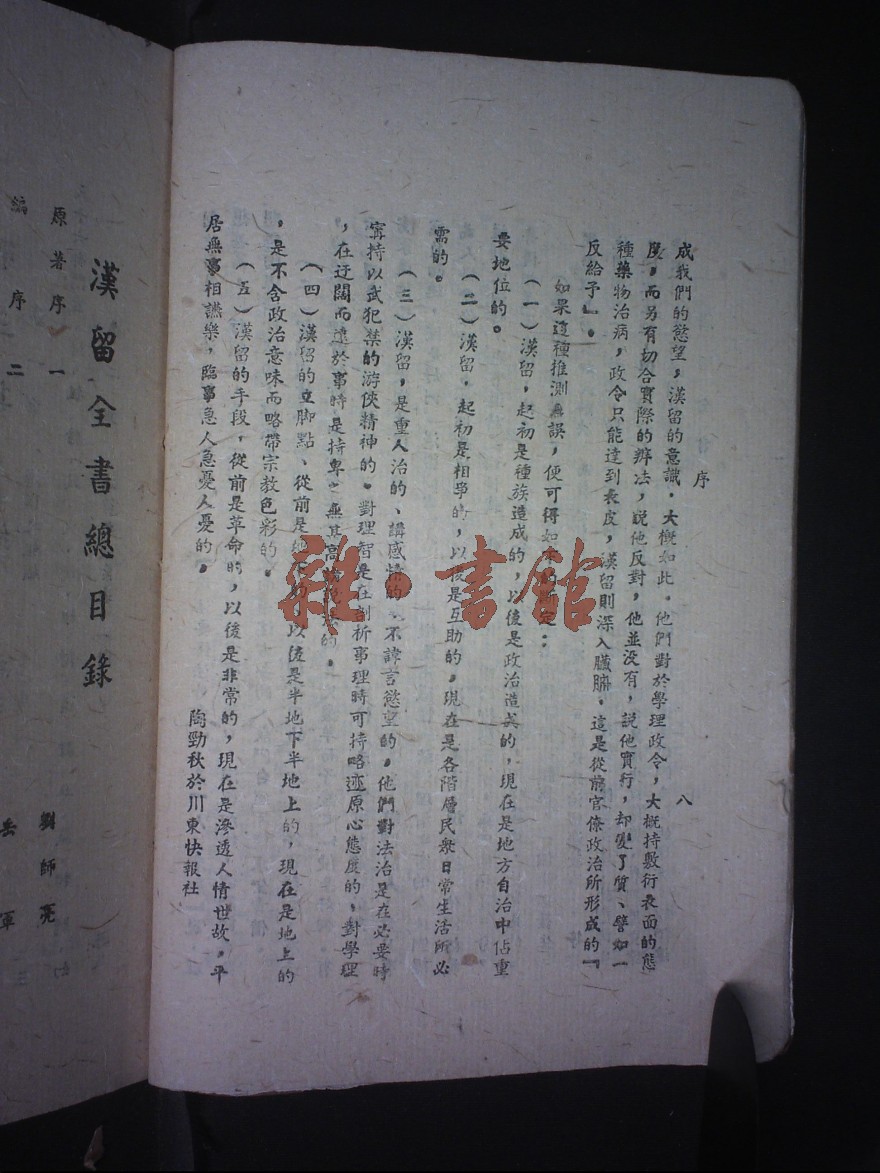 序
八
成我們的慾望，漢留的意識，大概如此。他們對於學理政令，大概持敷衍表面的態
度，而另有切合實際的辦法，說他反對，他並没有，說他實行，却變了質、譬如一
種藥物治病，政令只能達到表皮，漢留則深入臟腑，這是從前官僚政治所形成的『
反給予』。
如果這種推測無誤，便可得如定：
（一）漢留，起初是種族造成的，以後是政治造成的，現在是地方自治中佔重
要地位的。
（二）漢留，起初是相爭的，以後是互助的，現在是各階層民衆日常生活所必
需的。
（三）漢留，是重人治的、講感情的、不諱言慾望的。他們對法治是在必要時
寗持以武犯禁的游俠精神的。對理智是在剖析事理時可持略迹原心態度的，對學理
，在迂闊而遠於事時是持卑之無甚高的。
（四）漢留的立脚點、從前是地下的，以後是半地下半地上的，現在是地上的
，是不含政治意味而略帶宗教色彩的。
（五）漢留的手段，從前是革命的，以後是非常的，現在是滲透人情世故，平
居無事相讌樂，臨事急人急憂人憂的。
陶勁秋於川東快報社
漢留全書總目錄
原著序一
劉師亮
編序二
岳軍
雜·書館